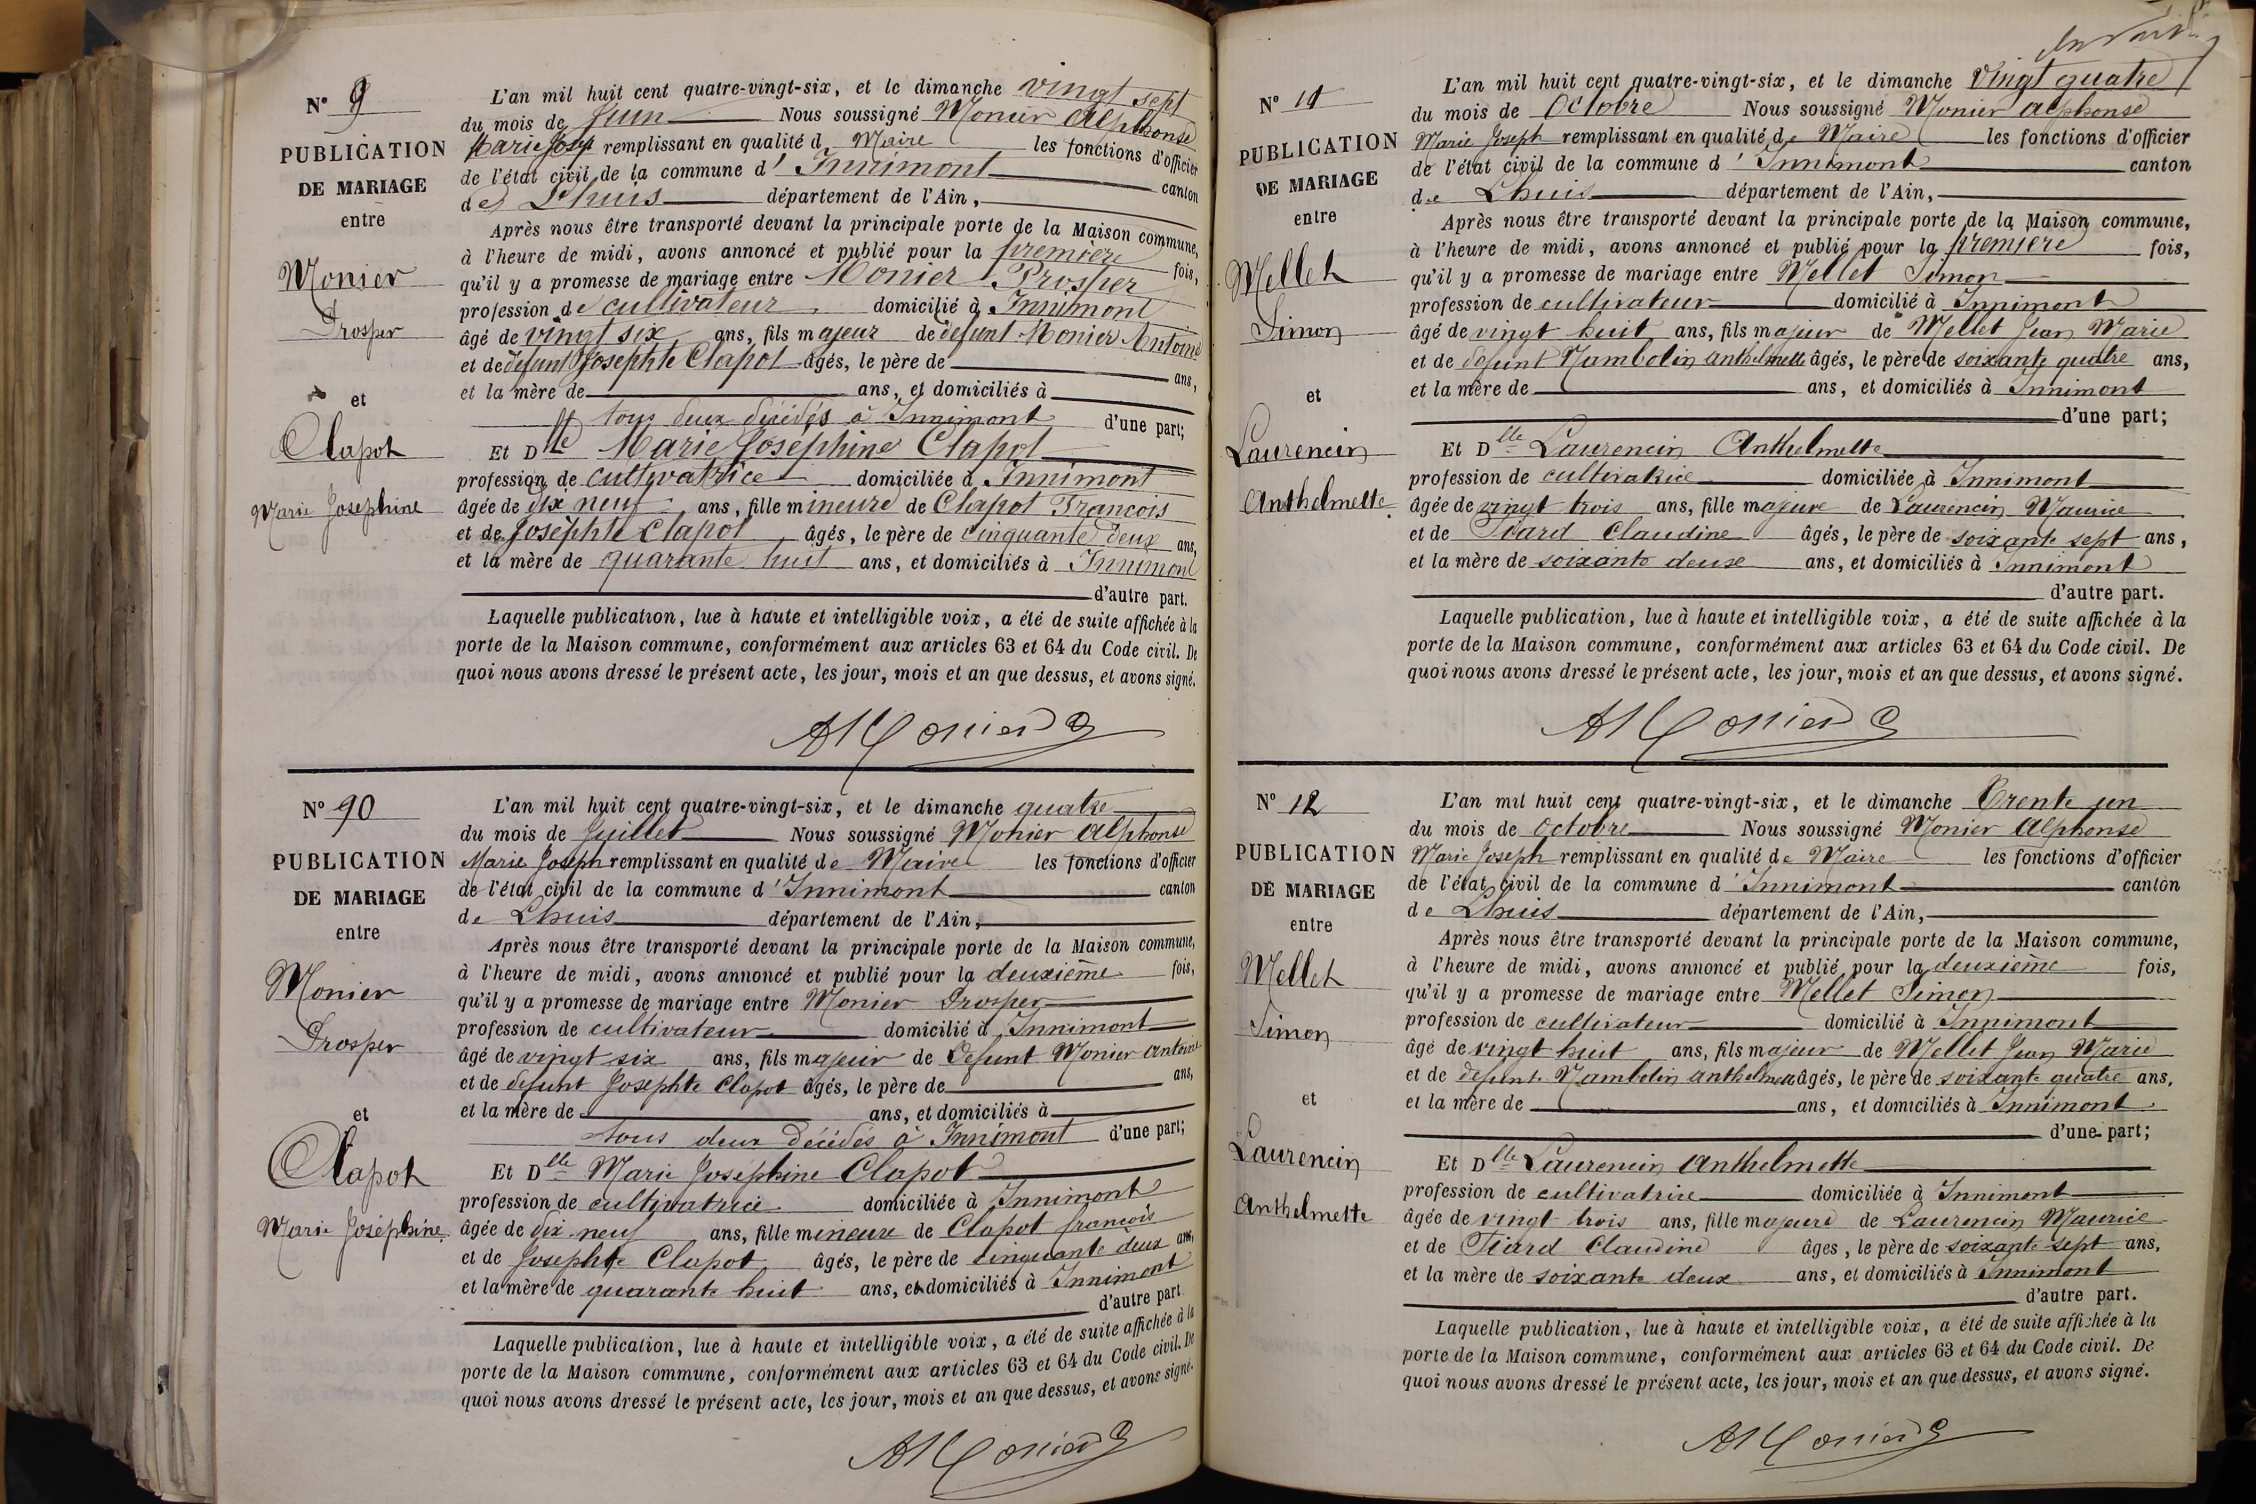 N° 9
PUBLICATION
DE MARIAGE
entre
Monier
Prosper
et
Clapot
Marie Josephine
L'an mil huit cent quatre-vingt-six, et le dimanche vingt sept
du mois de Juin Nous soussigné Monier Alphonse
Marie Josep remplissant en qualité d Maire les fonctions d'officier
de l'état civil de la commune d' Innimont canton
de Lhuis département de l'Ain,
Après nous être transporté devant la principale porte de la Maison commune,
à l'heure de midi, avons annoncé et publié pour la première fois,
qu'il y a promesse de mariage entre Monier Prosper
profession de cultivateur domicilié à Innimont
âgé de vingt six ans, fils majeur de défunt Monier Antoine
et de defunt Josephte Clapot âgés, le père de ans,
et la mère de ans, et domiciliés à
tous deux décédés à Innimont d'une part;
Et Dlle Marie Joséphine Clapot
profession de cultivatrice domiciliée à Innimont
âgée de dix neuf ans, fille mineure de Clapot François
et de Josephte Clapot âgés, le père de cinquante deux ans,
et la mère de quarante huit ans, et domiciliés à Innimont
d'autre part.
Laquelle publication, lue à haute et intelligible voix, a été de suite affichée à la
porte de la Maison commune, conformément aux articles 63 et 64 du Code civil. De
quoi nous avons dressé le présent acte, les jour, mois et an que dessus, et avons signé.
AMonier
N° 90
PUBLICATION
DE MARIAGE
entre
Monier
Prosper
et
Clapot
Marie Joséphine
L'an mil huit cent quatre-vingt-six, et le dimanche quatre
du mois de Juillet Nous soussigné Monier Alphonse
Marie Joseph remplissant en qualité de Maire les fonctions d'officier
de l'état civil de la commune d' Innimont canton
de Lhuis département de l'Ain,
Après nous être transporté devant la principale porte de la Maison commune,
à l'heure de midi, avons annoncé et publié pour la deuxième fois,
qu'il y a promesse de mariage entre Monier Prosper
profession de cultivateur domicilié à Innimont
âgé de vingt six ans, fils majeur de Defunt Monier Antoine
et de defunt Josephte Clapot âgés, le père de ans,
et la mère de ans, et domiciliés à
tous deux décédés à Innimont d'une part;
Et Dlle Marie Joséphine Clapot
profession de cultivatrice domiciliée à Innimont
âgée de dix neuf ans, fille mineure de Clapot françois
et de Josephte Clapot âgés, le père de cinquante deux ans,
et la mère de quarante huit ans, et domiciliés à Innimont
d'autre part
Laquelle publication, lue à haute et intelligible voix, a été de suite affichée à la
porte de la Maison commune, conformément aux articles 63 et 64 du Code civil. De
quoi nous avons dressé le présent acte, les jour, mois et an que dessus, et avons signé.
AMonier
N° 11
PUBLICATION
DE MARIAGE
entre
Mellet
Simon
et
Laurencin
Anthelmette
L'an mil huit cent quatre-vingt-six, et le dimanche Vingt quatre
du mois de Octobre Nous soussigné Monier Alphonse
Marie Joseph remplissant en qualité de Maire les fonctions d'officier
de l'état civil de la commune d' Innimont canton
de Lhuis département de l'Ain,
Après nous être transporté devant la principale porte de la Maison commune,
à l'heure de midi, avons annoncé et publié pour la première fois,
qu'il y a promesse de mariage entre Mellet Simon
profession de cultivateur domicilié à Innimont
âgé de vingt huit ans, fils majeur de Mellet Jean Marie
et de defunt Nambotin anthelmette âgés, le père de soixante quatre ans,
et la mère de ans, et domiciliés à Innimont
d'une part;
Et Dlle Laurencin Anthelmette
profession de cultivatrice domiciliée à Innimont
âgée de vingt trois ans, fille majeure de Laurencin Maurice
et de Tiard Claudine âgés, le père de soixante sept ans,
et la mère de soixante deux ans, et domiciliés à Innimont
d'autre part.
Laquelle publication, lue à haute et intelligible voix, a été de suite affichée à la
porte de la Maison commune, conformément aux articles 63 et 64 du Code civil. De
quoi nous avons dressé le présent acte, les jour, mois et an que dessus, et avons signé.
AMonier
N° 12
PUBLICATION
DE MARIAGE
entre
Mellet
Simon
et
Laurencin
Anthelmette
L'an mil huit cent quatre-vingt-six, et le dimanche Trente un
du mois de Octobre Nous soussigné Monier Alphonse
Marie Joseph remplissant en qualité de Maire les fonctions d'officier
de l'état civil de la commune d' Innimont canton
de Lhuis département de l'Ain,
Après nous être transporté devant la principale porte de la Maison commune,
à l'heure de midi, avons annoncé et publié pour la deuxième fois,
qu'il y a promesse de mariage entre Mellet Simon
profession de cultivateur domicilié à Innimont
âgé de vingt huit ans, fils majeur de Mellet Jean Marie
et de defunte Nambotin anthelmette âgés, le père de soixante quatre ans,
et la mère de ans, et domiciliés à Innimont
d'une part;
Et Dlle Laurencin Anthelmette
profession de cultivatrice domiciliée à Innimont
âgée de vingt trois ans, fille majeure de Laurencin Maurice
et de Tiard Claudine âgés, le père de soixante sept ans,
et la mère de soixante deux ans, et domiciliés à Innimont
d'autre part.
Laquelle publication, lue à haute et intelligible voix, a été de suite affichée à la
porte de la Maison commune, conformément aux articles 63 et 64 du Code civil. De
quoi nous avons dressé le présent acte, les jour, mois et an que dessus, et avons signé.
AMonier